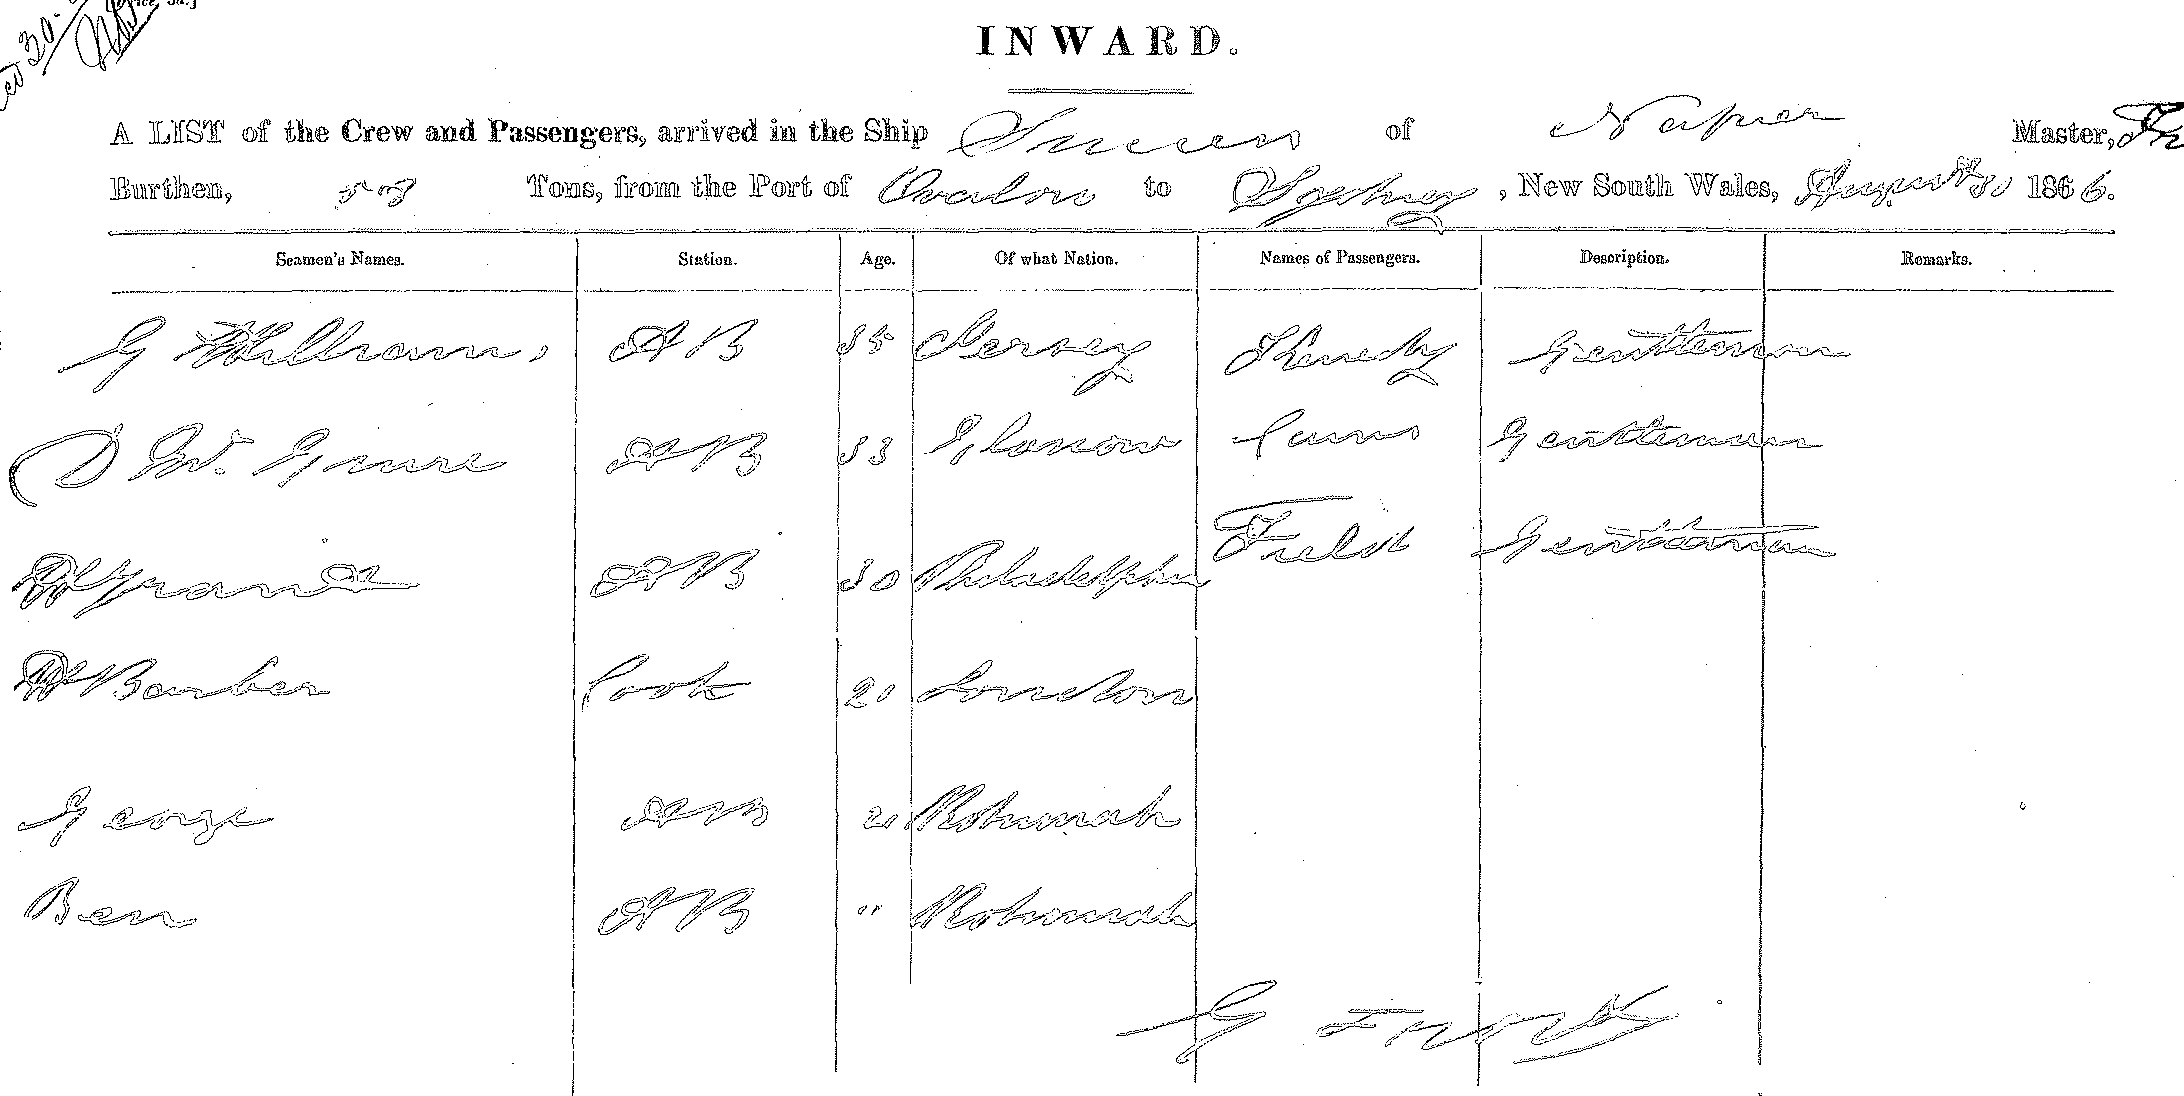 30
INWARD.
A LIST of the Crew and Passengers, arrived in the Ship of Napier Master,
Burthen, 58 Tons, from the Port of Ovalou to Sydney, New South Wales, August 30 1866.
Seamen's Names. Station. Age. Of what Nation. Names of Passengers. Description. Remarks.
G Williams AB 35 Jersey Kenedy Gentleman
D AB 33 Glasgow Gentleman
Grant AB 30 Philadelphia Field Gentleman
Barber Cook 20 London
George AB 21 Rotumah
Ben AB " Rotumah
G